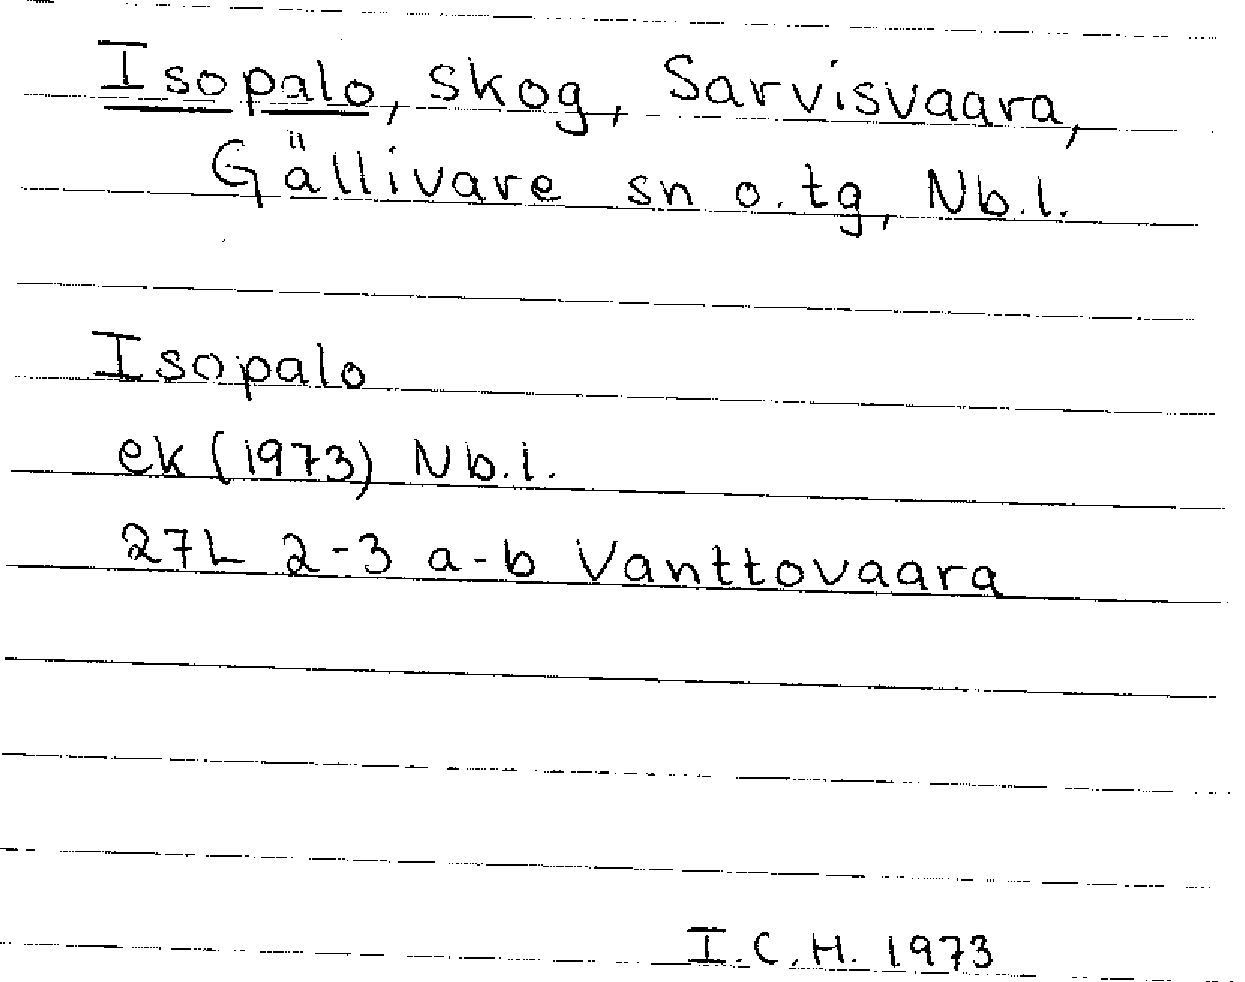 Isopalo, skog, Sarvisvaara,
Gällivare sn o. tg, Nb.l.
Isopalo
ek (1973) Nb.l.
27L 2-3 a-b Vanttovaara
I.C.H. 1973